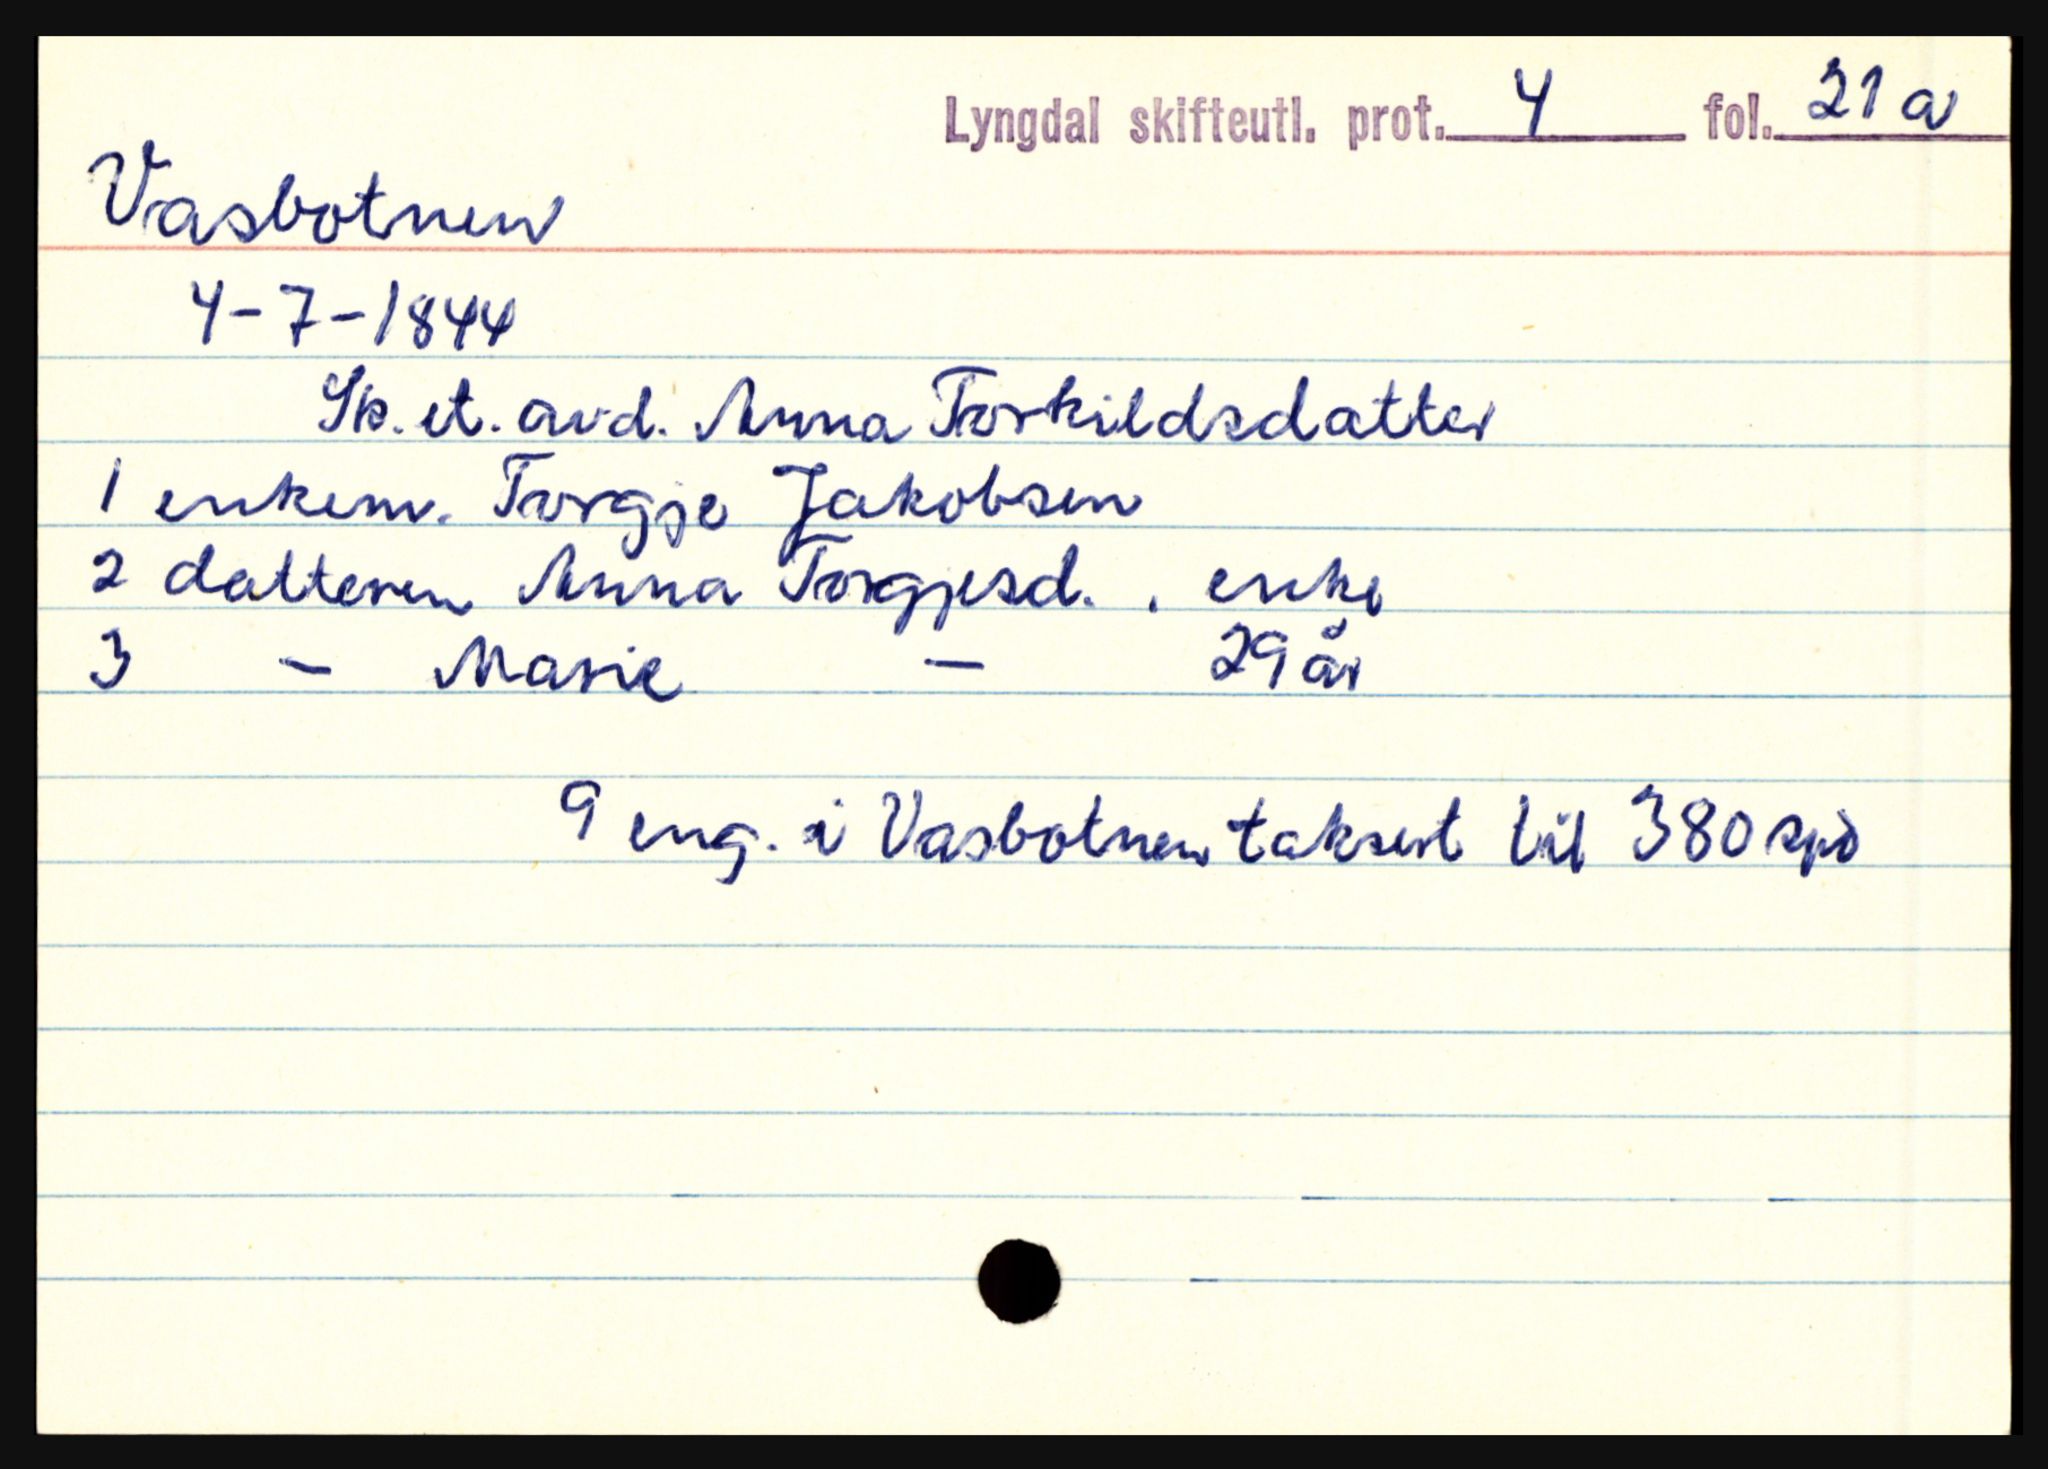 Lyngdal skifteutl. prot. 4 fol. 21 a
Vasbotnen
4-7-1844
Sk. et. avd. Anna Torkildsdatter
1 enkem. Torgje Jakobsen
2 datteren Anna Torgjesd. , enke
3 - Marie - 29 år
9 eng. i Vasbotnen taksert til 380 spd